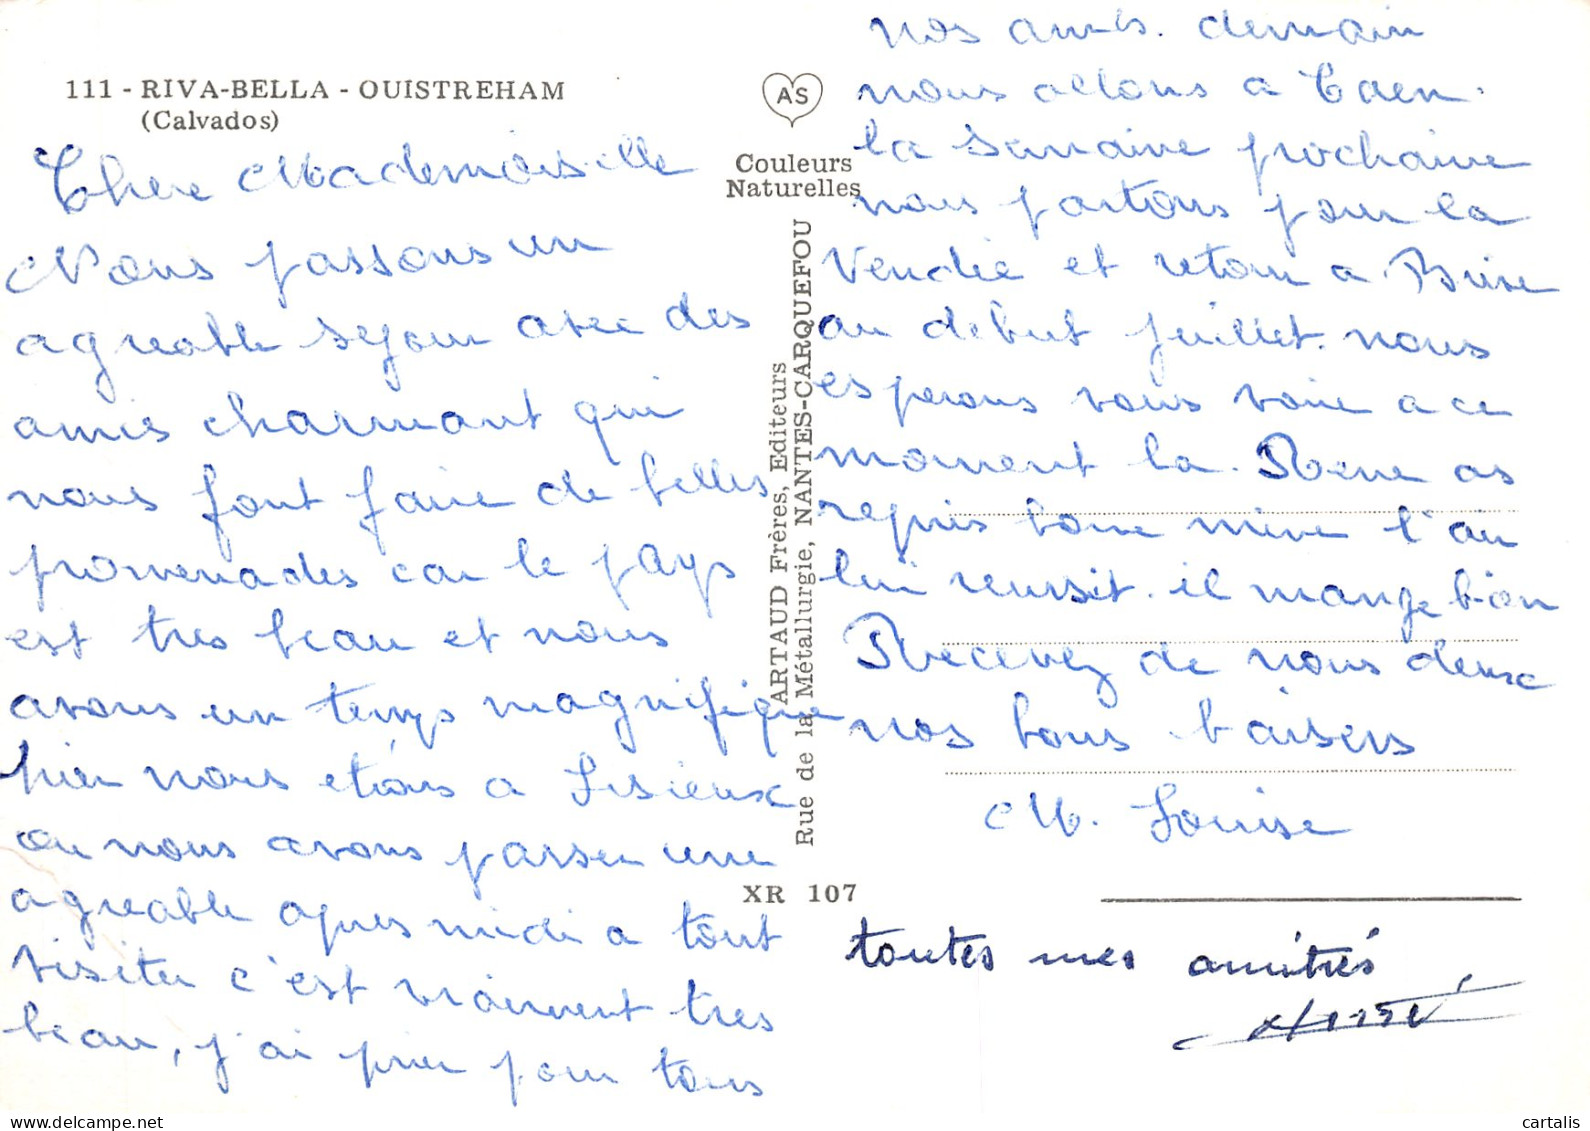 111 - RIVA-BELLA - OUISTREHAM
(Calvados)
Chere Mademoiselle
Nous passons un
agreable sejour avec des
amis charmant qui
nous font faire de belles
promenades car le pays
est tres beau et nous
avons un temps magnifique
hier nous etions a Lisieux
ou nous avons passer une
agreable apres midi a tout
visiter c'est vraiment tres
beau, j'ai prier pour tous
AS
Couleurs
Naturelles
ARTAUD Frères, Editeurs
Rue de la Métallurgie, NANTES-CARQUEFOU
XR 107
nos amis. demain
nous allons a Caen.
la semaine prochaine
nous partons pour la
Vendée et retour a
au debut juillet. nous
esperons vous voir a ce
moment la. Rene as
repris bonne mine l'air
lui reussit. il mange bien
Recevez de nous deux
nos bons baisers
M. Louise
toutes mes amitiés